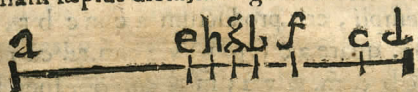 a e h g L f c d